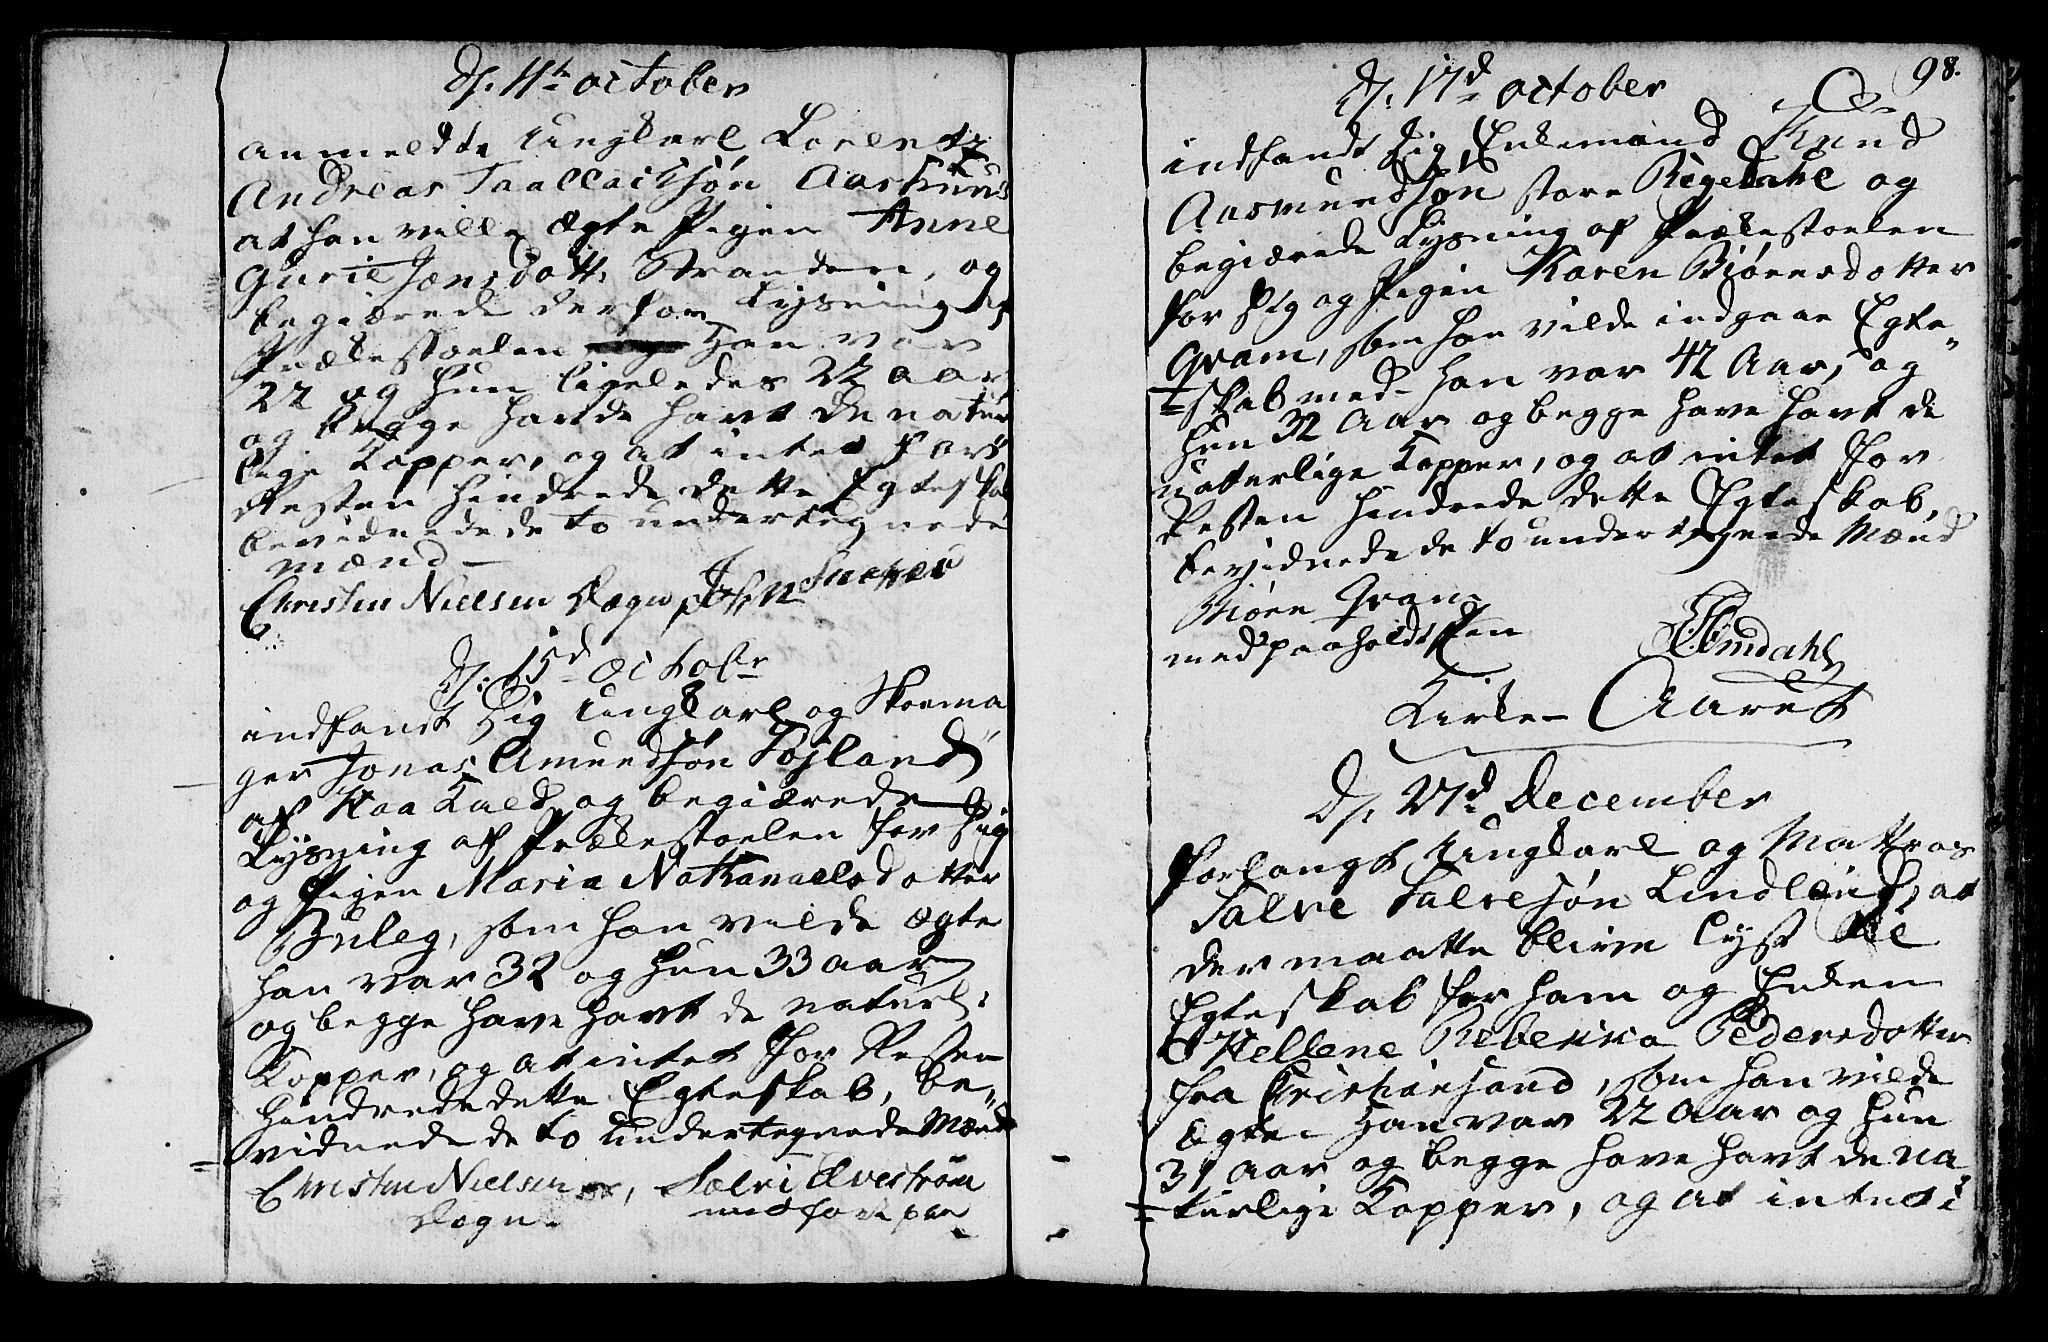 d. 11te october
anmeldte Ungkarl Lorentz
Andreas Taallacksøn
at han ville ægte Pigen Anne
Gurie Jonsdott: Stranden, og
begiærede derfor Lysning af
Prækestoelen Han var
22 og hun ligeledes 22 aar
og begge hafde havt de natur
lige Kopper, og at intet fors
Resten hindrede dette Egteskab
bevidnede de to undertegnede
mænd –
Christen Nielsen Søgne
d: 15d octobr
indfandt sig Ungkarl og Skoema
ger Jonas Amundsøn
af og begiærede
Lysning af Prækestoelen for sig
og Pigen Maria Nathanaelsdotter
som han vilde ægte
han var 32 og hun 33 aar
og begge have havt de naturl:
Kopper, og at intet for Resten
hindrede dette Egteskab, be„
vidnede de to undertegnede Mænd
Christen Nielsen
Søgne
98.
d: 17d october
indfandt sig Enkemand Knud
Aasmundsøn store Rigedahl og
begiærede Lysning af Prækestoelen
for sig og Pigen Karen Biørnsdotter
Qvam, som han vilde indgaae Egte„
=skab med – han var 42 Aar, og
hun 32 Aar og begge have havt de
naturlige Kopper, og at intet for
Resten hindrede dette Egteskab,
bevidnede de to undertegnede Mænd
Biørn Qvam
med paaholdt Pen
Kirke – Aaret
d. 27d December
forlangte Ungkarl og Mattros
Salve Salvesøn at
der maatte blive lyst til
Egteskab for ham og Enken
Hellene Rebekka Pedersdotter
fra Cristiansand, som han vilde
Egte. Han var 22 Aar og hun
31 aar og begge have havt de na
=turlige Kopper, og at intet i